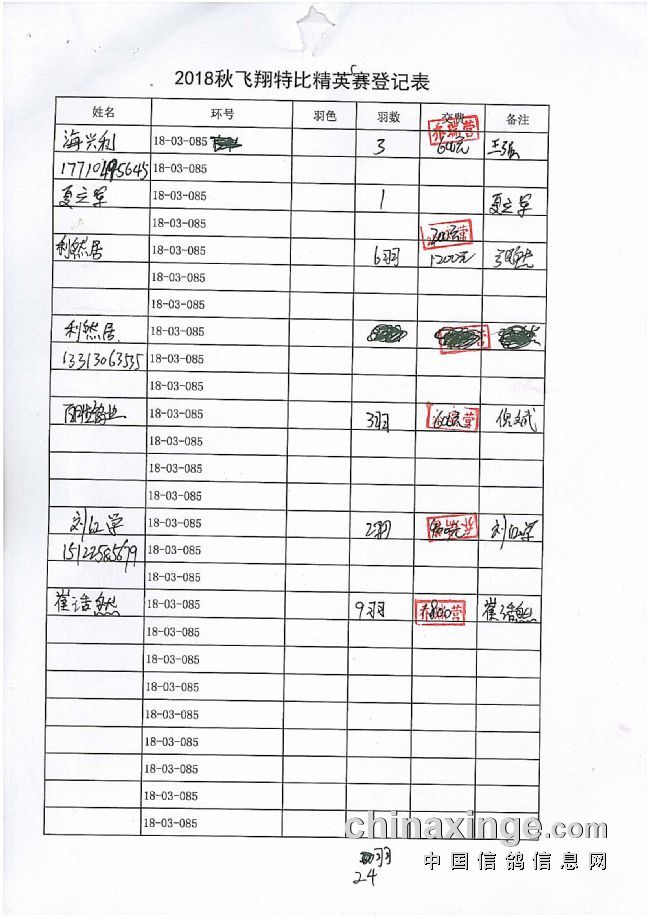 2018秋飞翔特比精英赛登记表
姓名 环号 羽色 羽数 交费 备注
海兴利 18-03-085 3 600元
18-03-085
夏立军 18-03-085 1 夏立军
18-03-085
利然居 18-03-085 6羽 1200元
18-03-085
18-03-085
利然居 18-03-085
13313063535 18-03-085
18-03-085
18-03-085 3羽
18-03-085
18-03-085
18-03-085
刘红军 18-03-085 2羽 刘红军
15122585679 18-03-085
18-03-085
崔浩然 18-03-085 9羽 1800 崔浩然
18-03-085
18-03-085
18-03-085
18-03-085
18-03-085
18-03-085
18-03-085
18-03-085
羽
24
chinaxinge.com
中国信鸽信息网